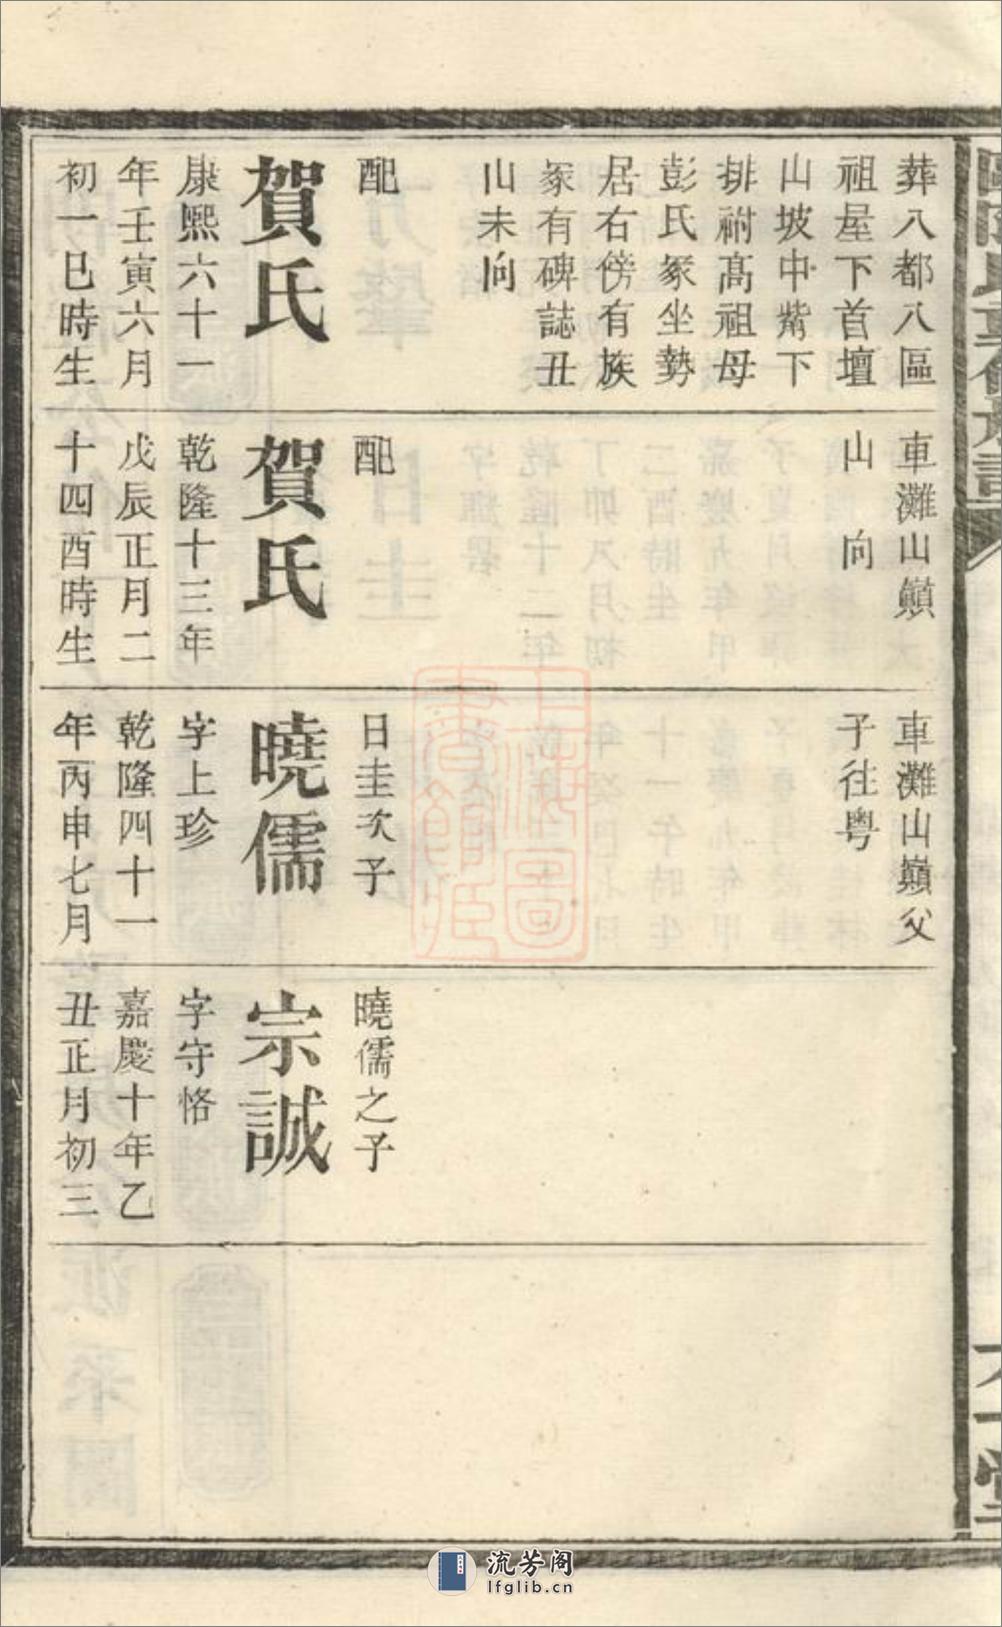 葬八都八區
祖屋下首壇
山坡中紫下
排祔髙祖母
彭氏冢坐勢
居右傍有族
冢有碑誌丑
山未向
配
賀氏
康熙六十一
年壬寅六月
初一巳時生
車灘山巔
山向
配
賀氏
乾隆十三年
戊辰正月二
十四酉時生
車灘山巔父
子往粤
日圭次子
曉儒
字上珍
乾隆四十一
年丙申七月
曉儒之子
宗誠
字守恪
嘉慶十年乙
丑正月初三
上海圖書館藏
流芳阁
lfglib.cn